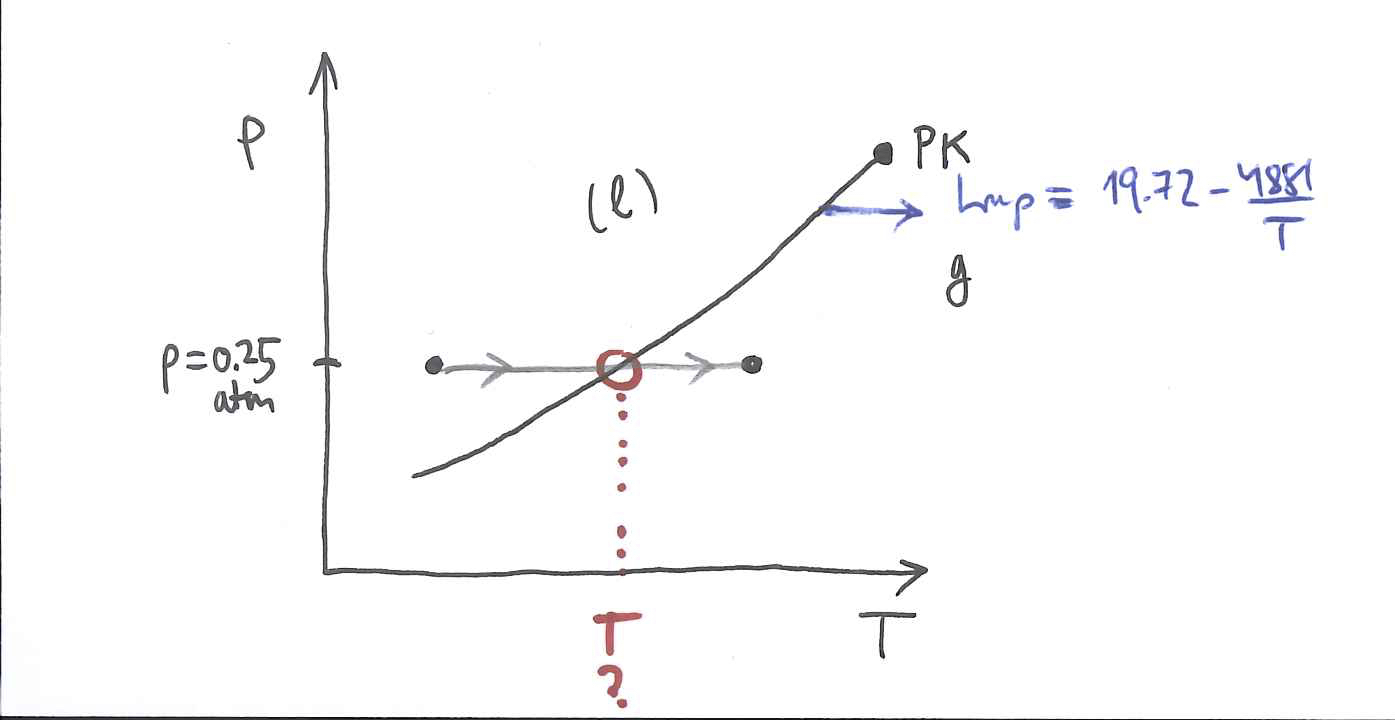 P
(l)
PK
Ln p = 19.72 - 4881/T
g
p=0.25
atm
T
?
T